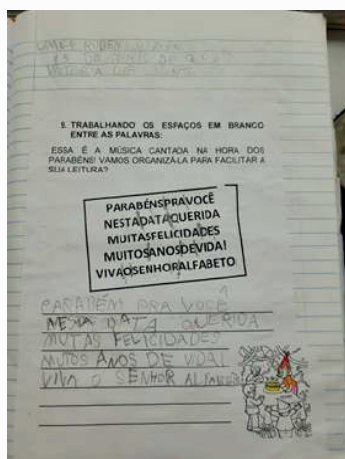 9. TRABALHANDO OS ESPAÇOS EM BRANCO
ENTRE AS PALAVRAS:
ESSA É A MÚSICA CANTADA NA HORA DOS
PARABÉNS! VAMOS ORGANIZÁ-LA PARA FACILITAR A
SUA LEITURA?
PARABÉNSPRAVOCÊ
NESTADATAQUERIDA
MUITASFELICIDADES
MUITOSANOSDEVIDA!
VIVAOSENHORALFABETO
PARABÉN PRA VOCÊ
NESTA DATA QUERIDA
MUTAS FELICIDADES
MUTOS ANOS DE VIDA!
VIVA O SENHOR ALFABETO